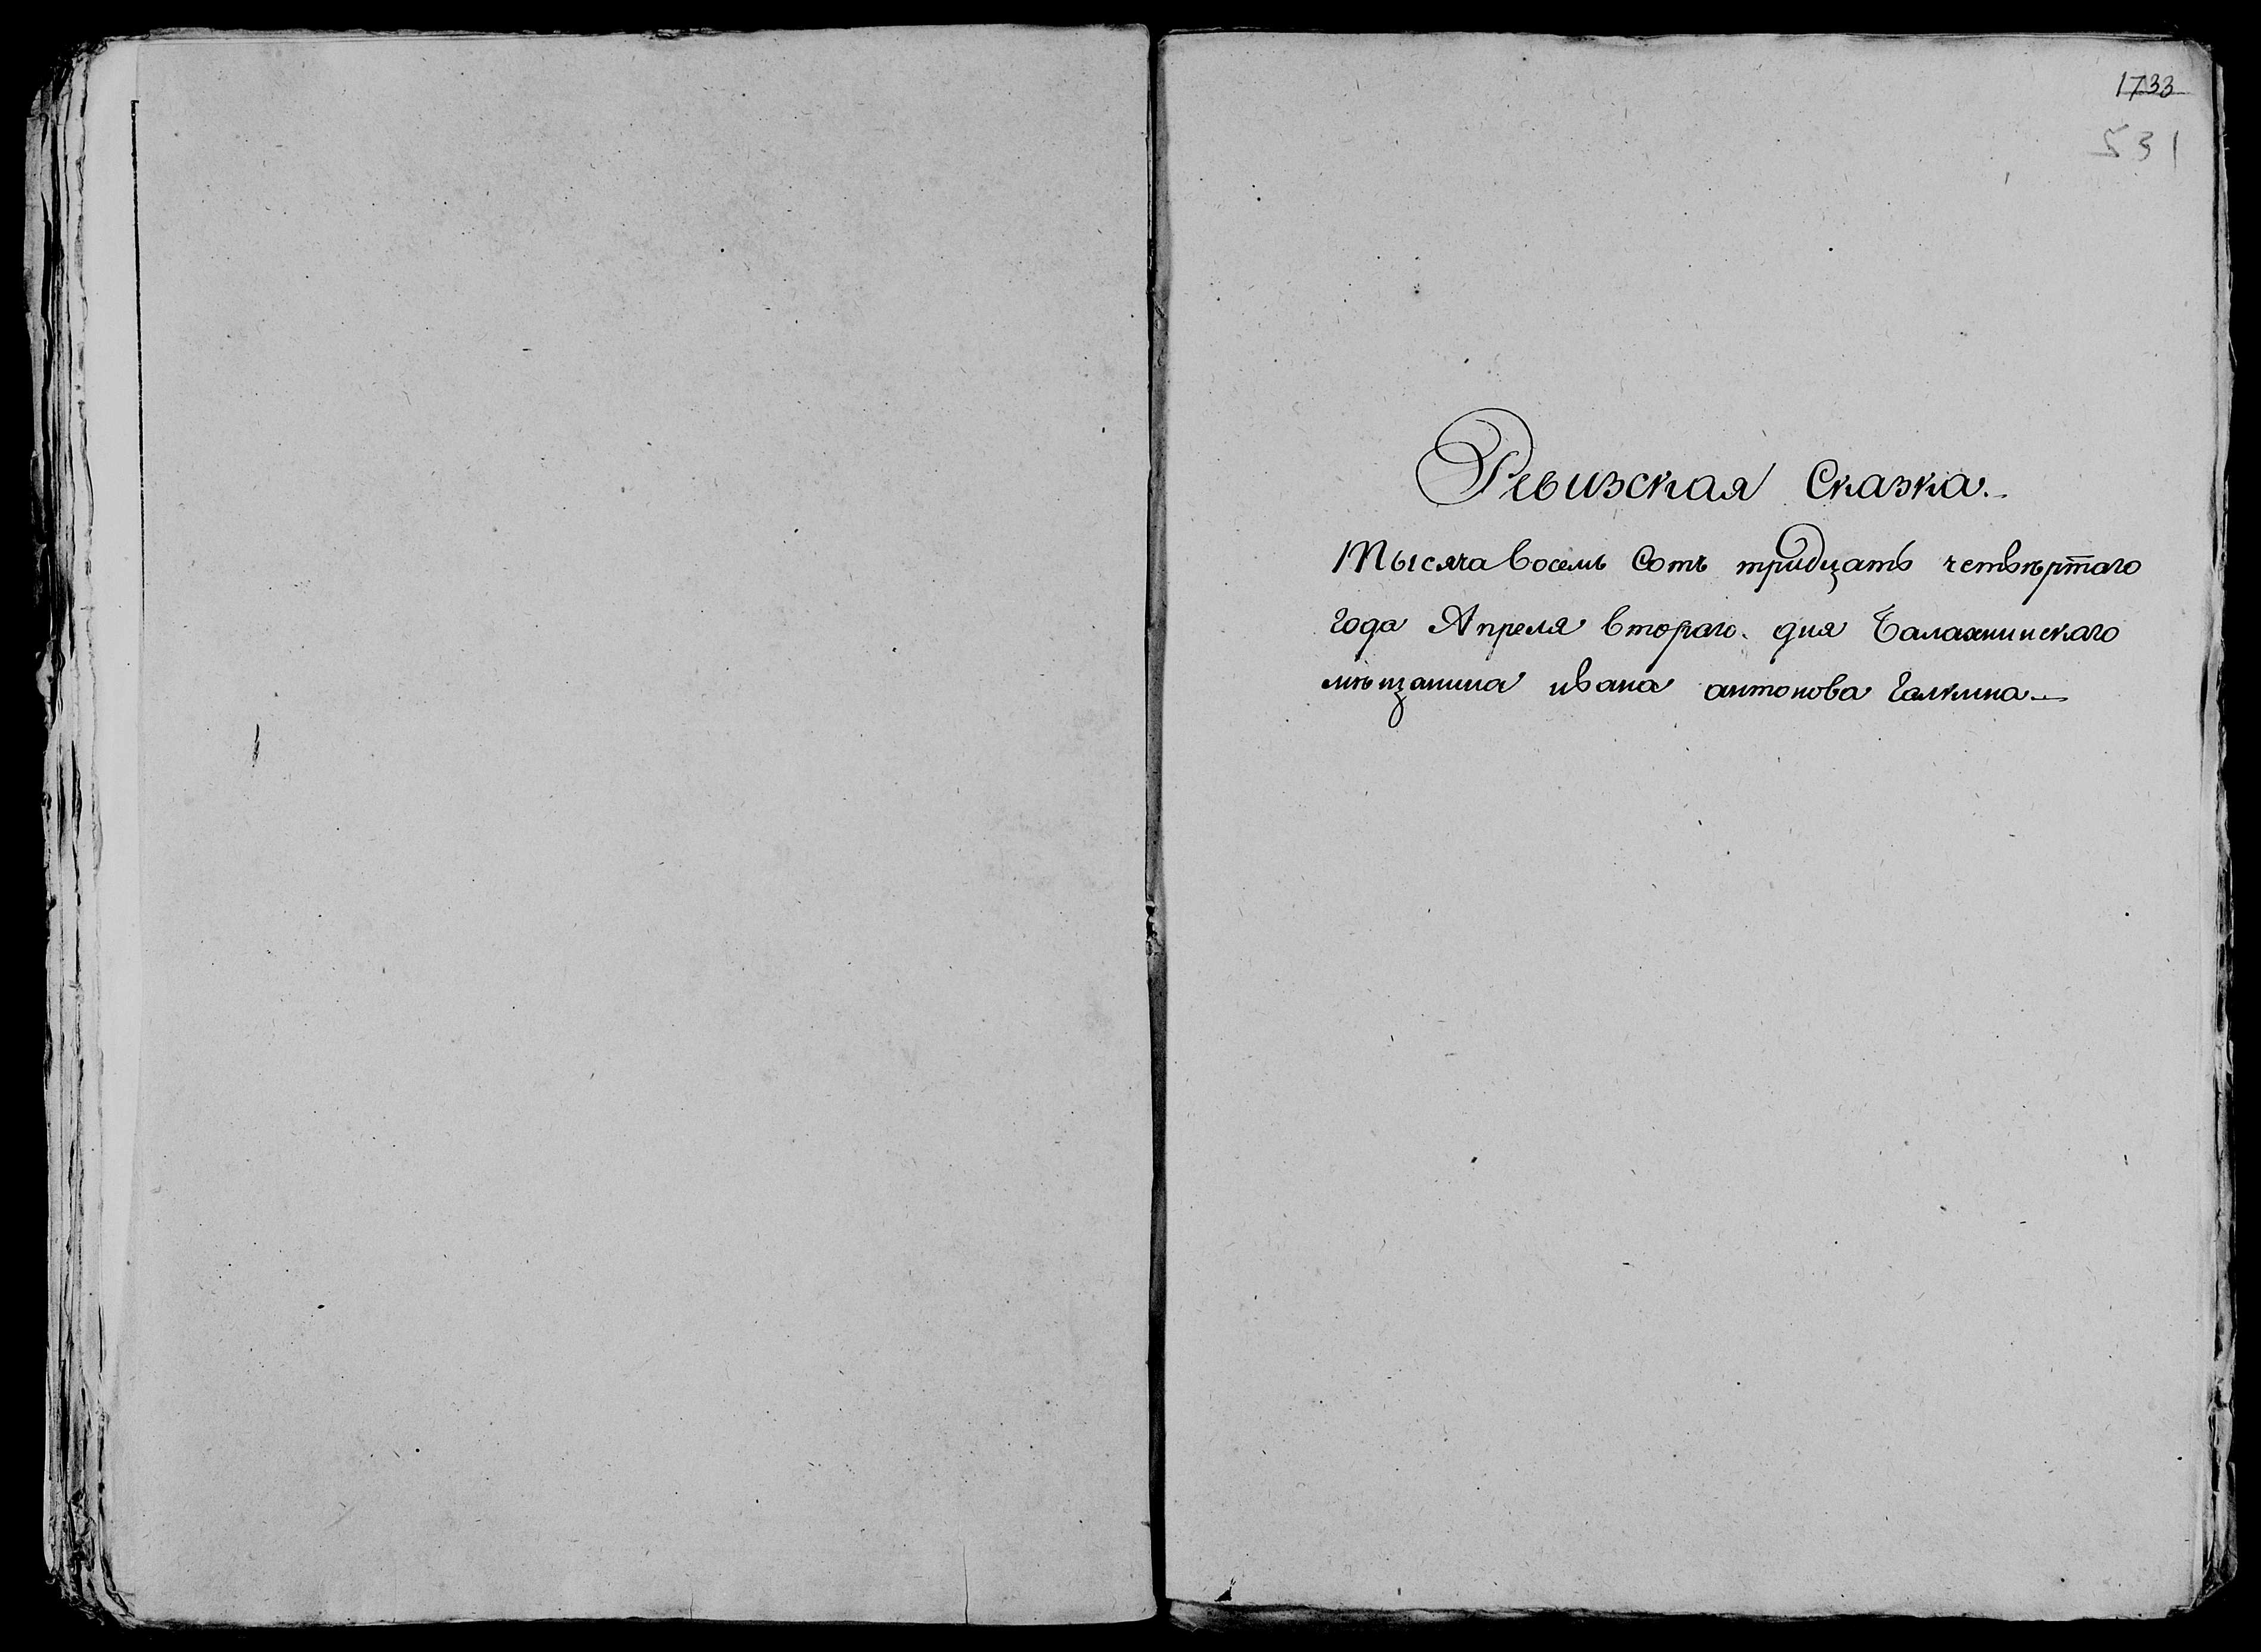 1733
531
Ревизская Сказка.
Тысяча восемь Сотъ тридцать четвѣртаго
года Апреля втораго дня Балахнинскаго
мѣщанина ивана антонова Галкина